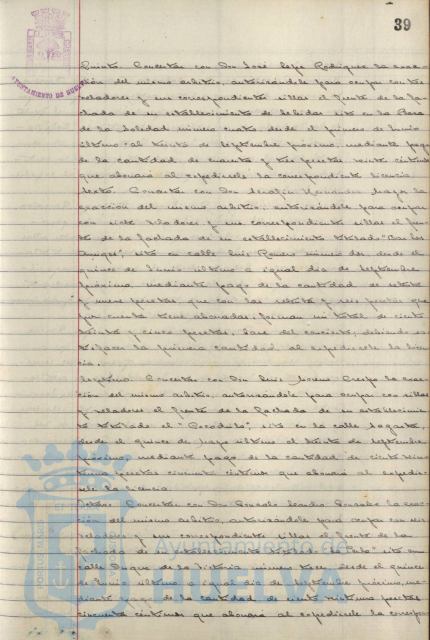 39
AYUNTAMIENTO DE HUELVA
Quinto Concertar con Don José López Rodríguez la exac-
ción del mismo arbitrio, autorizándole para ocupar con tres
veladores y sus correspondientes sillas el frente de la fa-
chada de su establecimiento de bebidas sito en la Plaza
de la Soledad número cuatro, desde el primero de Junio
último al treinta de Septiembre próximo, mediante pago
de la cantidad de cuarenta y tres pesetas veinte céntimos
que abonará al expedírsele la correspondiente licencia.
Sexto. Concertar con Don Serafín Hernández la
exacción del mismo arbitrio, autorizándole para ocupar
con siete veladores y sus correspondientes sillas el fren-
te de la fachada de su establecimiento titulado "Bar los
Amigos", sito en calle Luis Romero número dos desde el
quince de Junio último a igual día de Septiembre
próximo, mediante pago de la cantidad de
y nueve pesetas que con las y seis pesetas que
por cuenta tiene abonadas, forman un total de ciento
treinta y cinco pesetas, base del concierto, debiendo sa-
tisfacer la primera cantidad, al expedírsele la licen-
cia.
Septimo. Concertar con Don Luis Moreno Crespo la exac-
ción del mismo arbitrio, autorizándole para ocupar con sillas
y veladores el frente de la fachada de su establecimiento
titulado el "Cocodrilo", sito en la calle Sagasta,
desde el quince de Mayo último al treinta de Septiembre
próximo, mediante pago de la cantidad de ciento
pesetas cincuenta céntimos que abonará al expedír-
sele la licencia.
Octavo. Concertar con Don Gonzalo González la exac-
ción del mismo arbitrio, autorizándole para ocupar con seis
veladores y sus correspondientes sillas el frente de la
fachada de su establecimiento titulado sito en
calle Duque de la Victoria número tres desde el quince
de Junio último a igual día de Septiembre próximo, me-
diante pago de la cantidad de ciento veintiuna pesetas
cincuenta céntimos que abonará al expedírsele la corres-
Ayuntamiento de
HUELVA